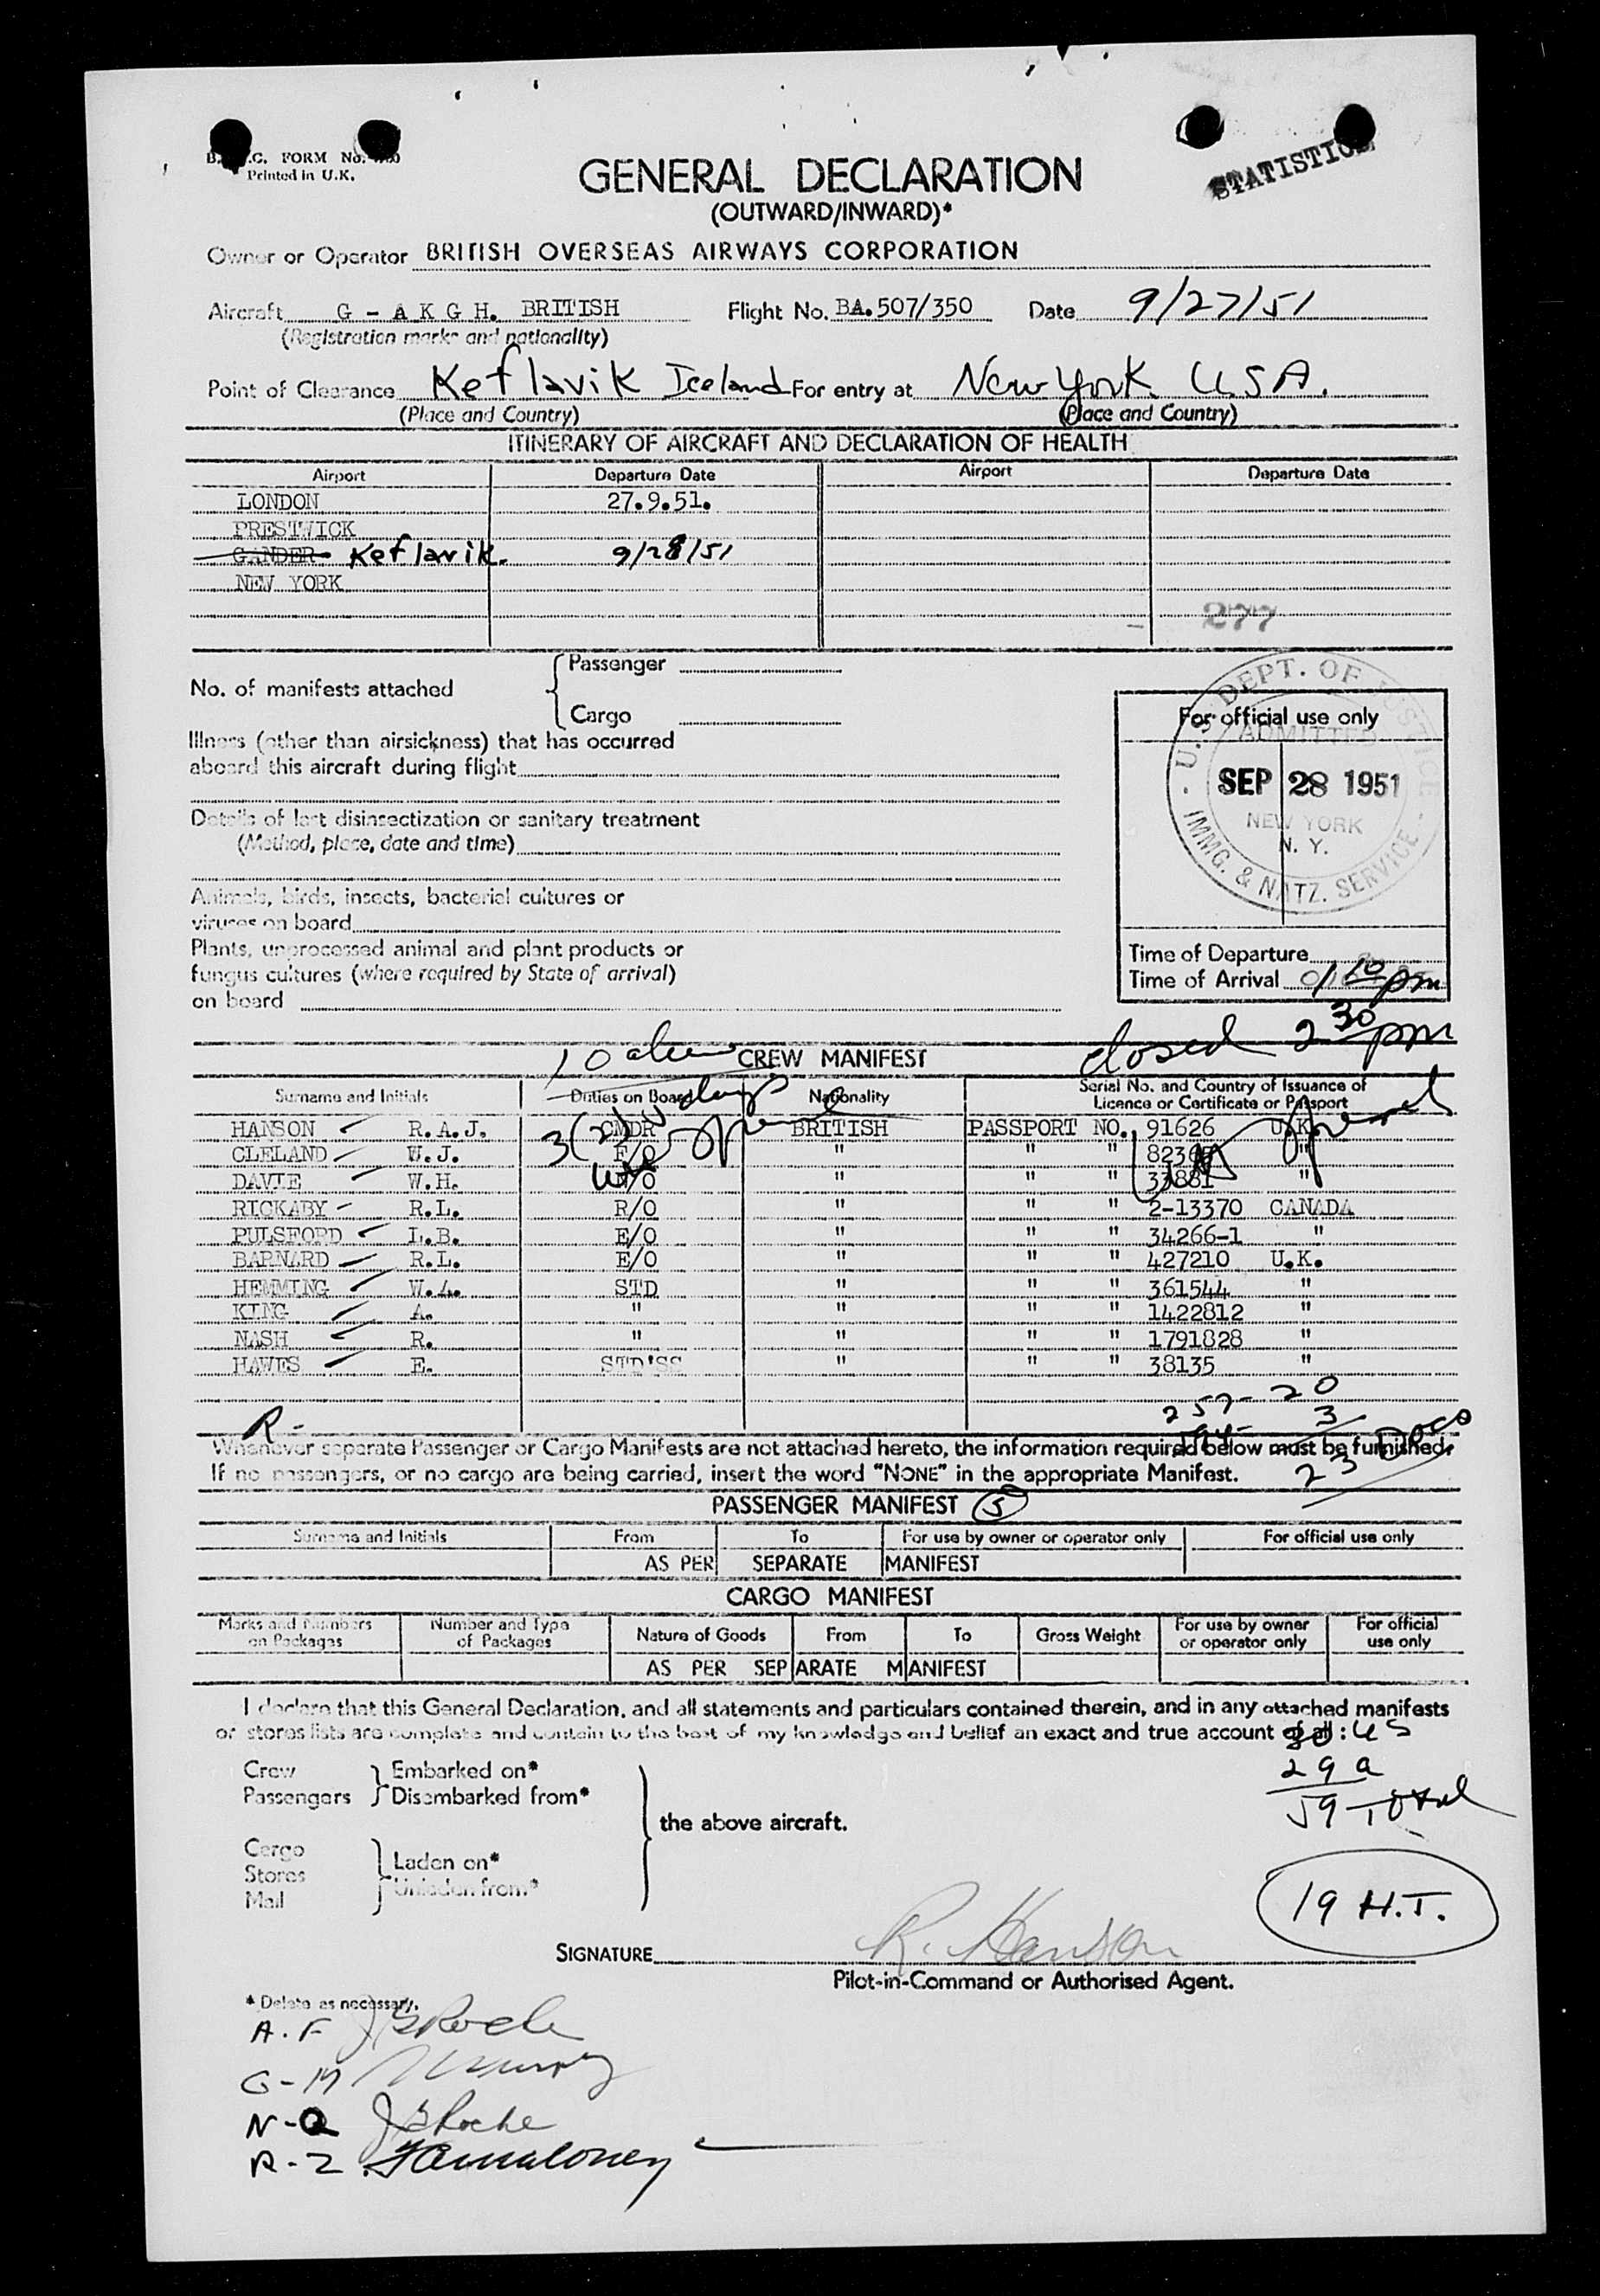 FORM No.
Printed in U.K.
STATISTICS
GENERAL DECLARATION
(OUTWARD/INWARD)*
Owner or Operator BRITISH OVERSEAS AIRWAYS CORPORATION
Aircraft G - A K G H. BRITISH Flight No. BA. 507/350 Date 9/27/51
(Registration marks and nationality)
Point of Clearance Keflavik Iceland For entry at New York USA.
(Place and Country) (Place and Country)
ITINERARY OF AIRCRAFT AND DECLARATION OF HEALTH
Airport Departure Date Airport Departure Date
LONDON 27.9.51.
PRESTWICK
GANDER Keflavik. 9/28/51
NEW YORK
277
No. of manifests attached
Passenger
Cargo
Illness (other than airsickness) that has occurred
aboard this aircraft during flight
Details of last disinsectization or sanitary treatment
(Method, place, date and time)
Animals, birds, insects, bacterial cultures or
viruses on board
Plants, unprocessed animal and plant products or
fungus cultures (where required by State of arrival)
on board
For official use only
U. S. DEPT. OF JUSTICE
ADMITTED
SEP 28 1951
NEW YORK
N. Y.
IMMG. & NATZ. SERVICE
Time of Departure
Time of Arrival 1 10 pm
closed 2 30 pm
10
CREW MANIFEST
Surname and Initials Duties on Board Nationality Serial No. and Country of Issuance of
Licence or Certificate or Passport
HANSON R.A.J. CMDR BRITISH PASSPORT NO. 91626 U.K.
CLELAND W.J. F/O " " " "
DAVIE W.H. N/O " " " 33881 "
RICKABY R.L. R/O " " " 2-13370 CANADA
PULSFORD L.B. E/O " " " 34266-1 "
BARNARD R.L. E/O " " " 427210 U.K.
HEMMING W.A. STD " " " 361544 "
KING A. " " " " 1422812 "
NASH R. " " " " 1791828 "
HAWES E. STD'SS " " " 38135 "
257- 20
3
R-
Whenever separate Passenger or Cargo Manifests are not attached hereto, the information required below must be furnished.
If no passengers, or no cargo are being carried, insert the word "NONE" in the appropriate Manifest.
23 Docs
PASSENGER MANIFEST 5
Surname and Initials From To For use by owner or operator only For official use only
AS PER SEPARATE MANIFEST
CARGO MANIFEST
Marks and Numbers on Packages Number and Type of Packages Nature of Goods From To Gross Weight For use by owner or operator only For official use only
AS PER SEPARATE MANIFEST
I declare that this General Declaration, and all statements and particulars contained therein, and in any attached manifests
or stores lists are complete and contain to the best of my knowledge and belief an exact and true account of all :
30 US
29 a
59 Total
Crew
Passengers
Embarked on*
Disembarked from*
the above aircraft.
Cargo
Stores
Mail
Laden on*
Unladen from*
19 H.T.
SIGNATURE R. Hanson
Pilot-in-Command or Authorised Agent.
* Delete as necessary.
A.F
G-M
N-Q
R-Z